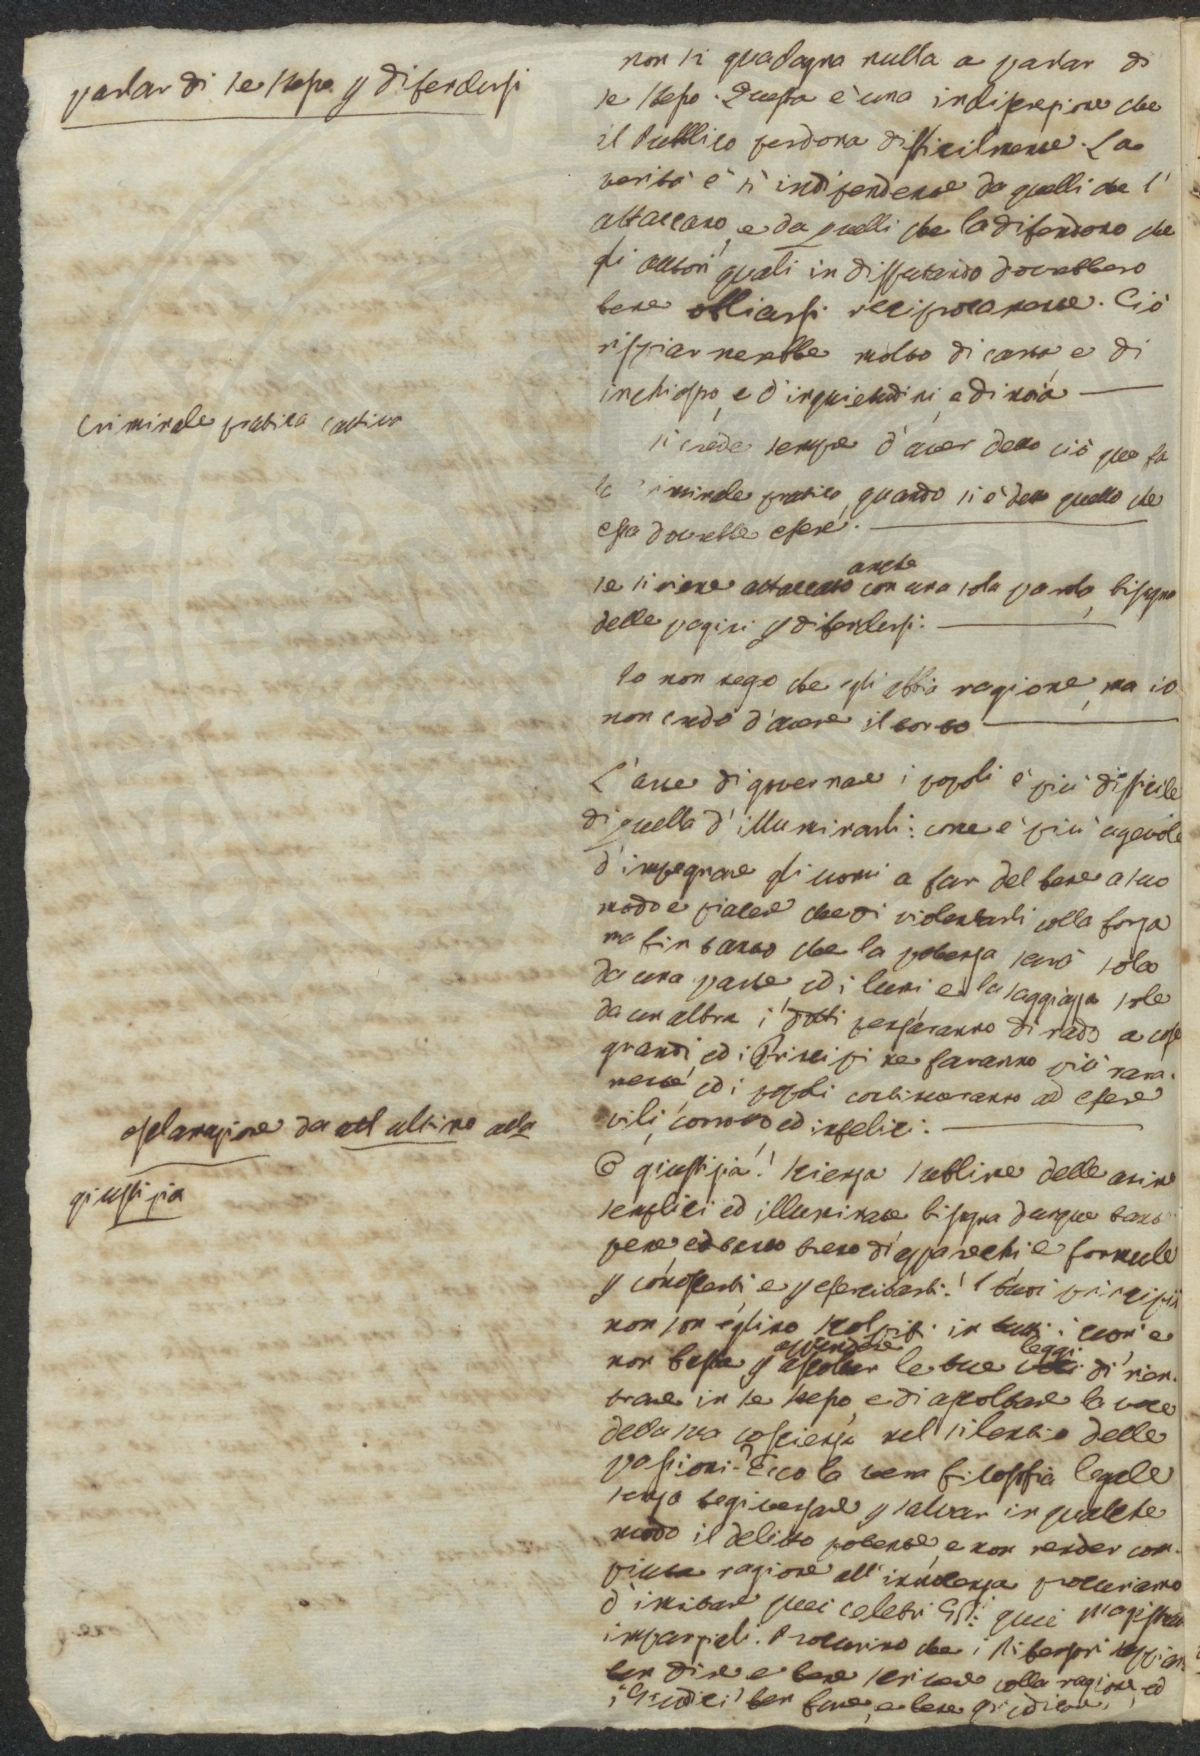 parlar di se stesso p difendersi
non si guadagna nulla a parlar di
se stesso. Questa è una indiscrezione che
il Pubblico perdona difficilmente. La
verità è sì indipendente da quelli che l'
attaccano, e da quelli che la difendono che
gli autori quali in disputando dovrebbero
bene obliarsi reciprocamente. Ciò
risparmierebbe molto di carta, e di
inchiostro, e d'inquietudini, e di noia
Criminale pratica cattiva
si crede sempre d'aver detto ciò que fa
la criminale pratica, quando si è detto quello che
essa dovrebbe essere.
se si viene attaccato anche con una sola parola, bisogna
delle pagini p difendersi.
Io non nego che egli abbia ragione, ma io
non credo d'avere il torto
L'arte di governare i popoli è più difficile
di quella d'illuminarli: come è più agevole
d'impegnare gli uomi a far del bene a suo
modo e piacere che di violentarli colla forza
ma fin tanto che la potenza sarà sola
da una parte ed i lumi e la saggiezza sole
da un'altra i dotti penseranno di rado a cose
grandi, ed i Principi ne faranno più rara-
mente, ed i popoli continueranno ad essere
vili, corrotti ed infelici.
esclamazione da all ultimo alla
giustizia
O giustizia! scienza sublime delle anime
semplici ed illuminate bisogna dunque tante
pene ed tanto treno di apparecchi e formule
p conoscerti, e p esercitarti! I tuoi principii
non son eglino scolpiti in tutti i cuori e
non basta p apprendere ascoltar le tue leggi voci di rien-
trare in se stesso, e di ascoltare la voce
della sua coscienza nel silentio delle
passioni. Ecco la vera filosofia legale
senza tergiversare p salvar in qualche
modo il delitto potente, e non render com-
piuta ragione all'innocenza procuriamo
d'imitare quei celebri quei Magistrati
imparziali. Procurino che i Difensori sappian
ben dire e bene scrivere colla ragione, ed
i Giudici ben fare, e bene giudicare,